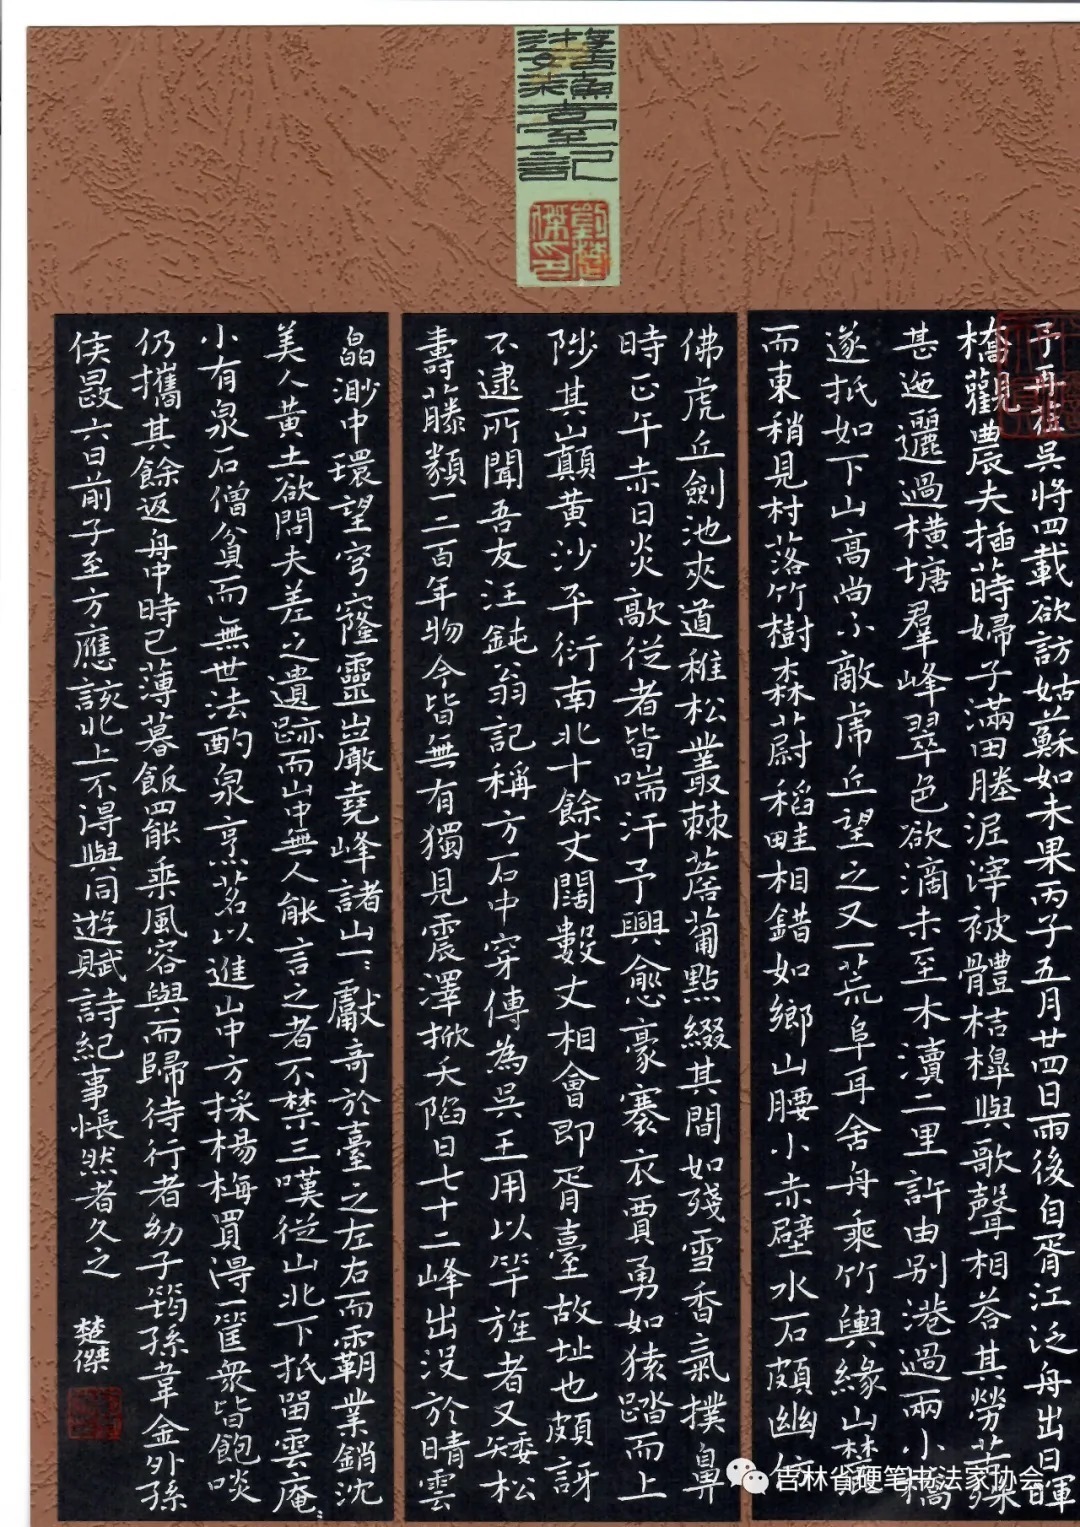 予再莅吳將四載欲訪姑蘇如未果丙子五月廿四日雨後自胥江泛舟出日暉
橋觀農夫插蒔婦子滿田塍泥滓被體桔槔與歌聲相荅其勞苦殊
甚迤邐過橫塘羣峰翠色欲滴未至木瀆二里許由別港過兩小橋
遂抵如下山高尚不敵虎丘望之又一荒阜耳舍舟乘竹輿緣山麓
而東稍見村落竹樹森蔚稻畦相錯如鄉山腰小赤壁水石頗幽仿
佛虎丘劍池夾道稚松叢棘薝蔔點綴其間如殘雪香氣撲鼻
時正午赤日炎歊從者皆喘汗予興愈豪褰衣賈勇如猿踏而上
陟其巔黃沙平衍南北十餘丈闊數丈相會即胥臺故址也頗訝
不逮所聞吾友汪鈍翁記稱方石中穿傳為吳王用以竿旌者又矮松
壽藤類一二百年物今皆無有獨見震澤掀天陷日七十二峰出沒於晴雲
皛渺中環望穹窿靈巖堯峰諸山:獻奇於臺之左右而霸業銷沈
美人黃土欲問夫差之遺跡而山中無人能言之者不禁三嘆從山北下抵畱雲庵:
小有泉石僧貧而無世法酌泉烹茗以進山中方採楊梅買得一筐衆皆飽啖
仍攜其餘返舟中時已薄暮飯四能乘風容與而歸待行者幼子筠孫韋金外孫
侯晸六日前子至方應該北上不得與同遊賦詩紀事悵然者久之
楚傑
吉林省硬笔书法家协会